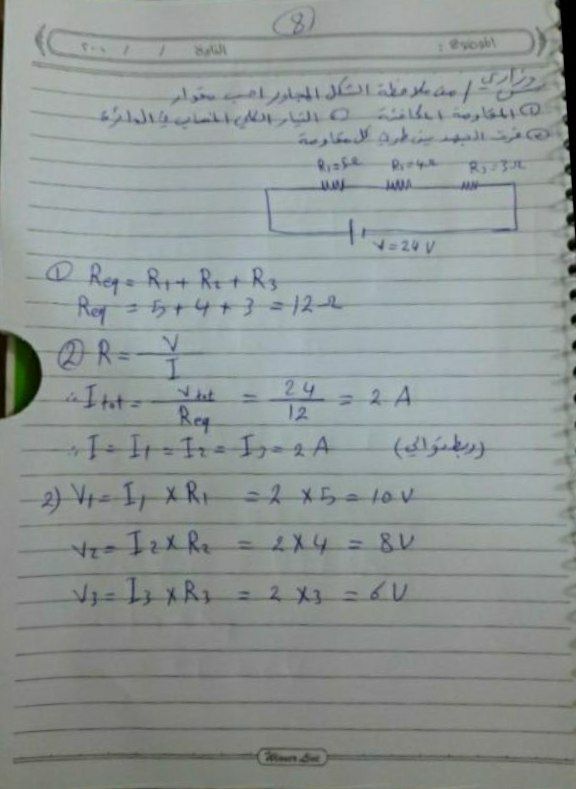 (8)
الموضوع : التاريخ / / ٢٠٠
وزاري
س / من ملاحظة الشكل المجاور احسب مقدار
① المقاومة المكافئة ② التيار الكلي المنساب في الدائرة
③ فرق الجهد بين طرفي كل مقاومة
R₁=5Ω R₂=4Ω R₃=3Ω
V=24V
① Req = R₁ + R₂ + R₃
Req = 5 + 4 + 3 = 12Ω
② R = V/I
∴ Itot = Vtot/Req = 24/12 = 2 A
∴ I = I₁ = I₂ = I₃ = 2 A (ربط توالي)
2) V₁ = I₁ × R₁ = 2 × 5 = 10V
V₂ = I₂ × R₂ = 2 × 4 = 8V
V₃ = I₃ × R₃ = 2 × 3 = 6V